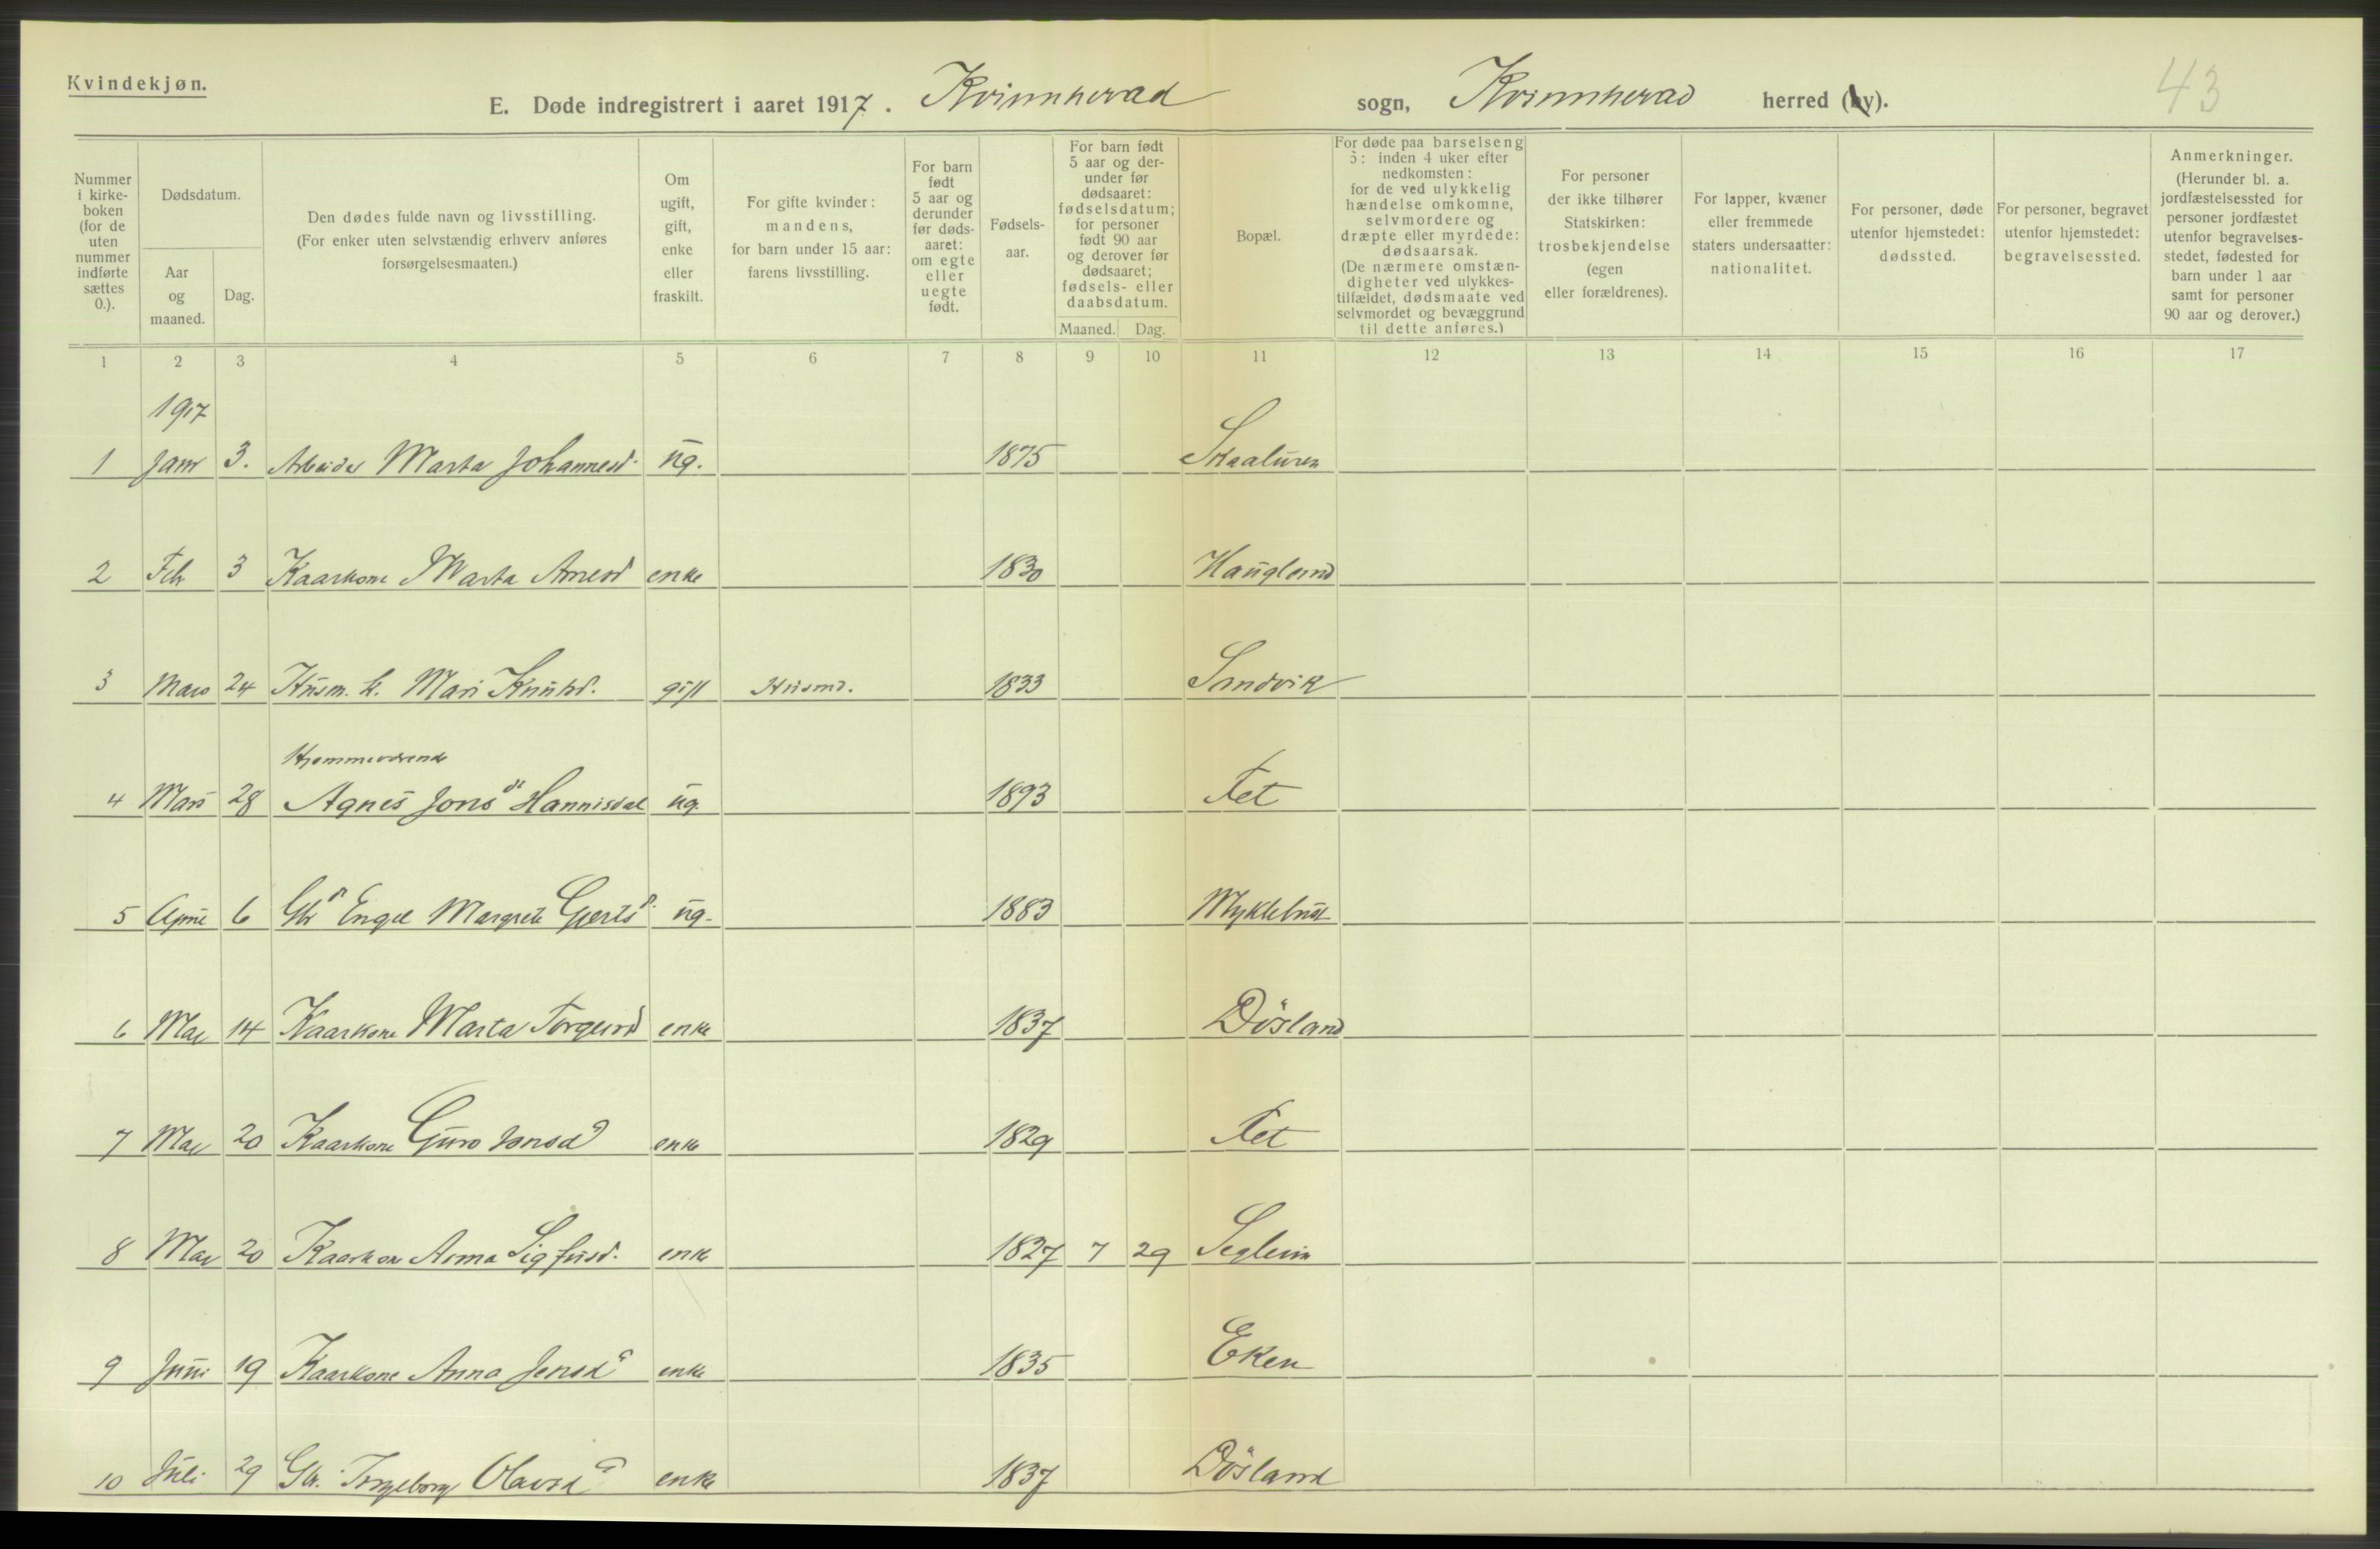 Kvindekjøn.
E. Døde indregistrert i aaret 1917. Kvinnherad sogn, Kvinnherad herred (by).
43
Nummer i kirke-boken (for de uten nummer indførte sættes 0.).
Dødsdatum.
Aar og maaned.
Dag.
Den dødes fulde navn og livsstilling. (For enker uten selvstændig erhverv anføres forsørgelsesmaaten.)
Om ugift, gift, enke eller fraskilt.
For gifte kvinder: mandens, for barn under 15 aar: farens livsstilling.
For barn født 5 aar og derunder før døds-aaret: om egte eller uegte født.
Fødsels-aar.
For barn født 5 aar og der-under før dødsaaret: fødselsdatum; for personer født 90 aar og derover før dødsaaret; fødsels- eller daabsdatum.
Maaned. Dag.
Bopæl.
For døde paa barselseng ɔ: inden 4 uker efter nedkomsten: for de ved ulykkelig hændelse omkomne, selvmordere og dræpte eller myrdede: dødsaarsak. (De nærmere omstæn-digheter ved ulykkes-tilfældet, dødsmaate ved selvmordet og bevæggrund til dette anføres.)
For personer der ikke tilhører Statskirken: trosbekjendelse (egen eller forældrenes).
For lapper, kvæner eller fremmede staters undersaatter: nationalitet.
For personer, døde utenfor hjemstedet: dødssted.
For personer, begravet utenfor hjemstedet: begravelsessted.
Anmerkninger. (Herunder bl. a. jordfæstelsessted for personer jordfæstet utenfor begravelses-stedet, fødested for barn under 1 aar samt for personer 90 aar og derover.)
1 2 3 4 5 6 7 8 9 10 11 12 13 14 15 16 17
1917
1 Janr 3. Arbeider Marta Johannesd. ug. 1875 Skaaluren
2 Feb 3 Kaarkone Marta Arnesd enke 1830 Haugland
3 Mars 24 Husm. k. Mari Knutsd. gift Husmd. 1833 Sandvik
Hjemmeværende
4 Mars 28 Agnes Jonsd Hannisdal ug. 1893 Fet
5 April 6 Gbr Engel Margrete Gjertsd. ug. 1883 Myklebust
6 Mai 14 Kaarkone Marta Torgeirsd enke 1837 Døsland
7 Mai 20 Kaarkone Guro Jonsd enke 1829 Fet
8 Mai 20 Kaarkone Anna Sigfusd. enke 1827 7 29 Seglem
9 Juni 19 Kaarkone Anna Jensd enke 1835 Eken
10 Juli 29 Gbr. Ingeborg Olavsd enke 1837 Døsland